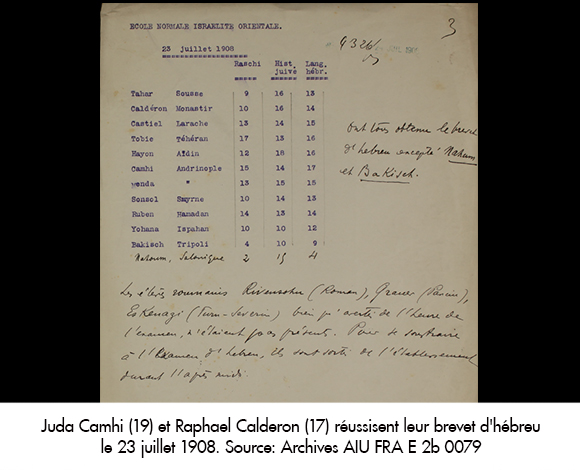 ECOLE NORMALE ISRAELITE ORIENTALE.
3
23 juillet 1908
4326
Raschi Hist. juive Lang. hébr.
Tahar Sousse 9 16 13
Caldéron Monastir 10 16 14
Castiel Larache 13 14 15
Tobie Téhéran 17 13 16
Hayon Aïdin 12 18 16
Camhi Andrinople 15 14 17
Menda " 13 15 15
Sonsol Smyrne 10 14 13
Ruben Hamadan 14 13 14
Yohana Ispahan 10 10 12
Bakisch Tripoli 4 10 9
Nahoum, Salonique 2 15 4
Ont tous obtenu le brevet
d'hébreu excepté Nahum
et Bakisch.
Les élèves roumains Rivensohn (Roman), Graner (),
Eskenazi (Turn-Severin) bien qu'avertis de l'heure de
l'examen, n'étaient pas présents. Pour se soustraire
à l'Examen d'hébreu, ils sont sortis de l'établissement
durant l'après midi.
Juda Camhi (19) et Raphael Calderon (17) réussisent leur brevet d'hébreu
le 23 juillet 1908. Source: Archives AIU FRA E 2b 0079